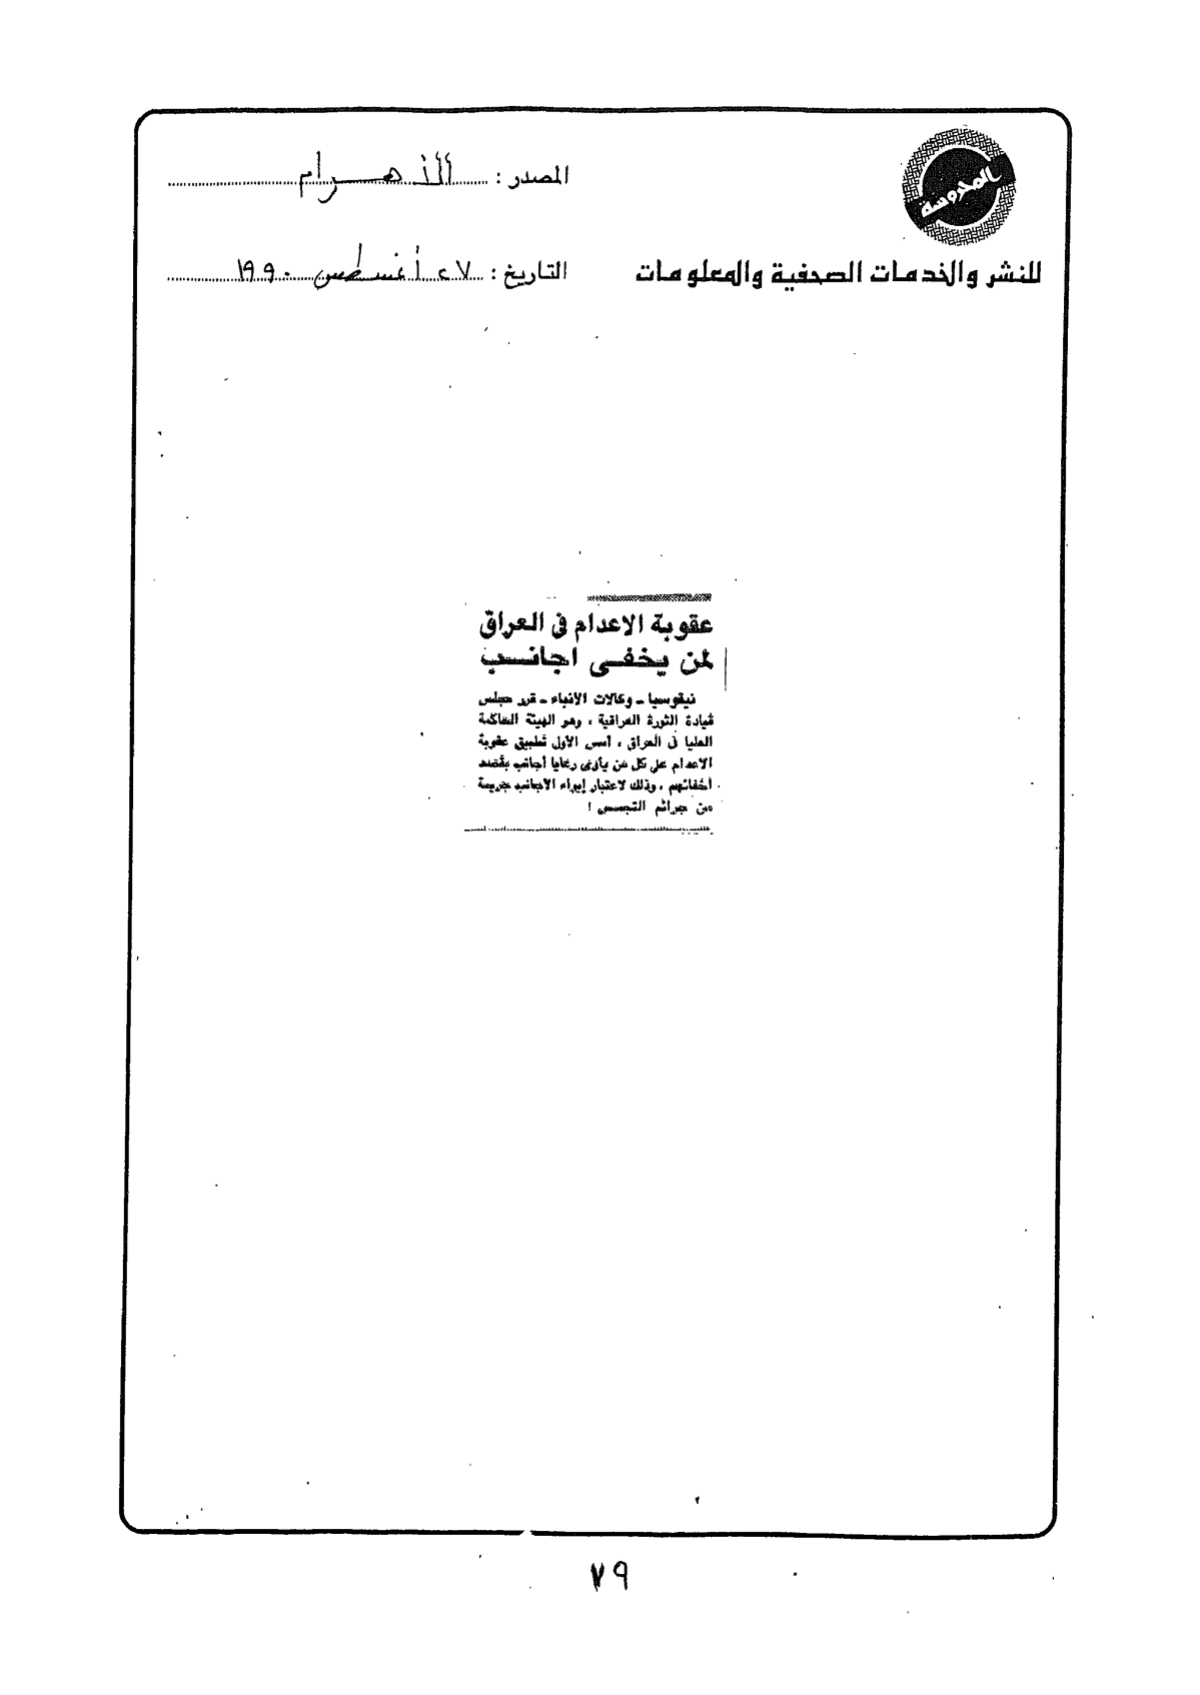 المحروسة
المصدر : الأهرام
للنشر والخدمات الصحفية والمعلومات
التاريخ : ٢٧ أغسطس ١٩٩٠
عقوبة الاعدام فى العراق
لمن يخفى اجانب
نيقوسيا ـ وكالات الأنباء ـ قرر مجلس
قيادة الثورة العراقية ، وهو الهيئة الحاكمة
العليا فى العراق ، أمس الأول تطبيق عقوبة
الاعدام على كل من يأوى رعايا أجانب بقصد
أخفائهم ، وذلك لاعتبار إيواء الأجانب جريمة
من جرائم التجسس !
٧٩